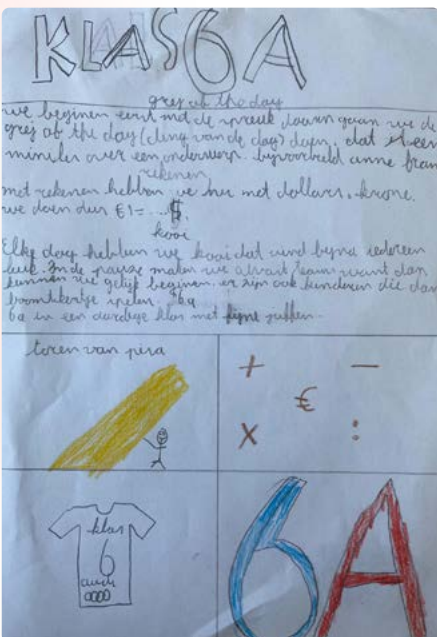 KLAS 6A
grej of the day
we beginnen eerst met de spreuk daarna gaan we de
grej of the day (ding van de dag) doen. dat is een
minuten over een onderwerp. bijvoorbeeld anne fran
rekenen
met rekenen hebben we nu met dollars, krone.
we doen dus €1= ...$.
kooi
Elke dag hebben we kooi dat vind byna iedereen
leuk. In de pauze maken we alvast team want dan
kunnen we gelijk beginnen. er zijn ook kinderen die dan
boomlikertje spelen.
6a
6a is een aardige klas met fijne juffen.
toren van pisa
+ −
€
x :
klas
6
6A